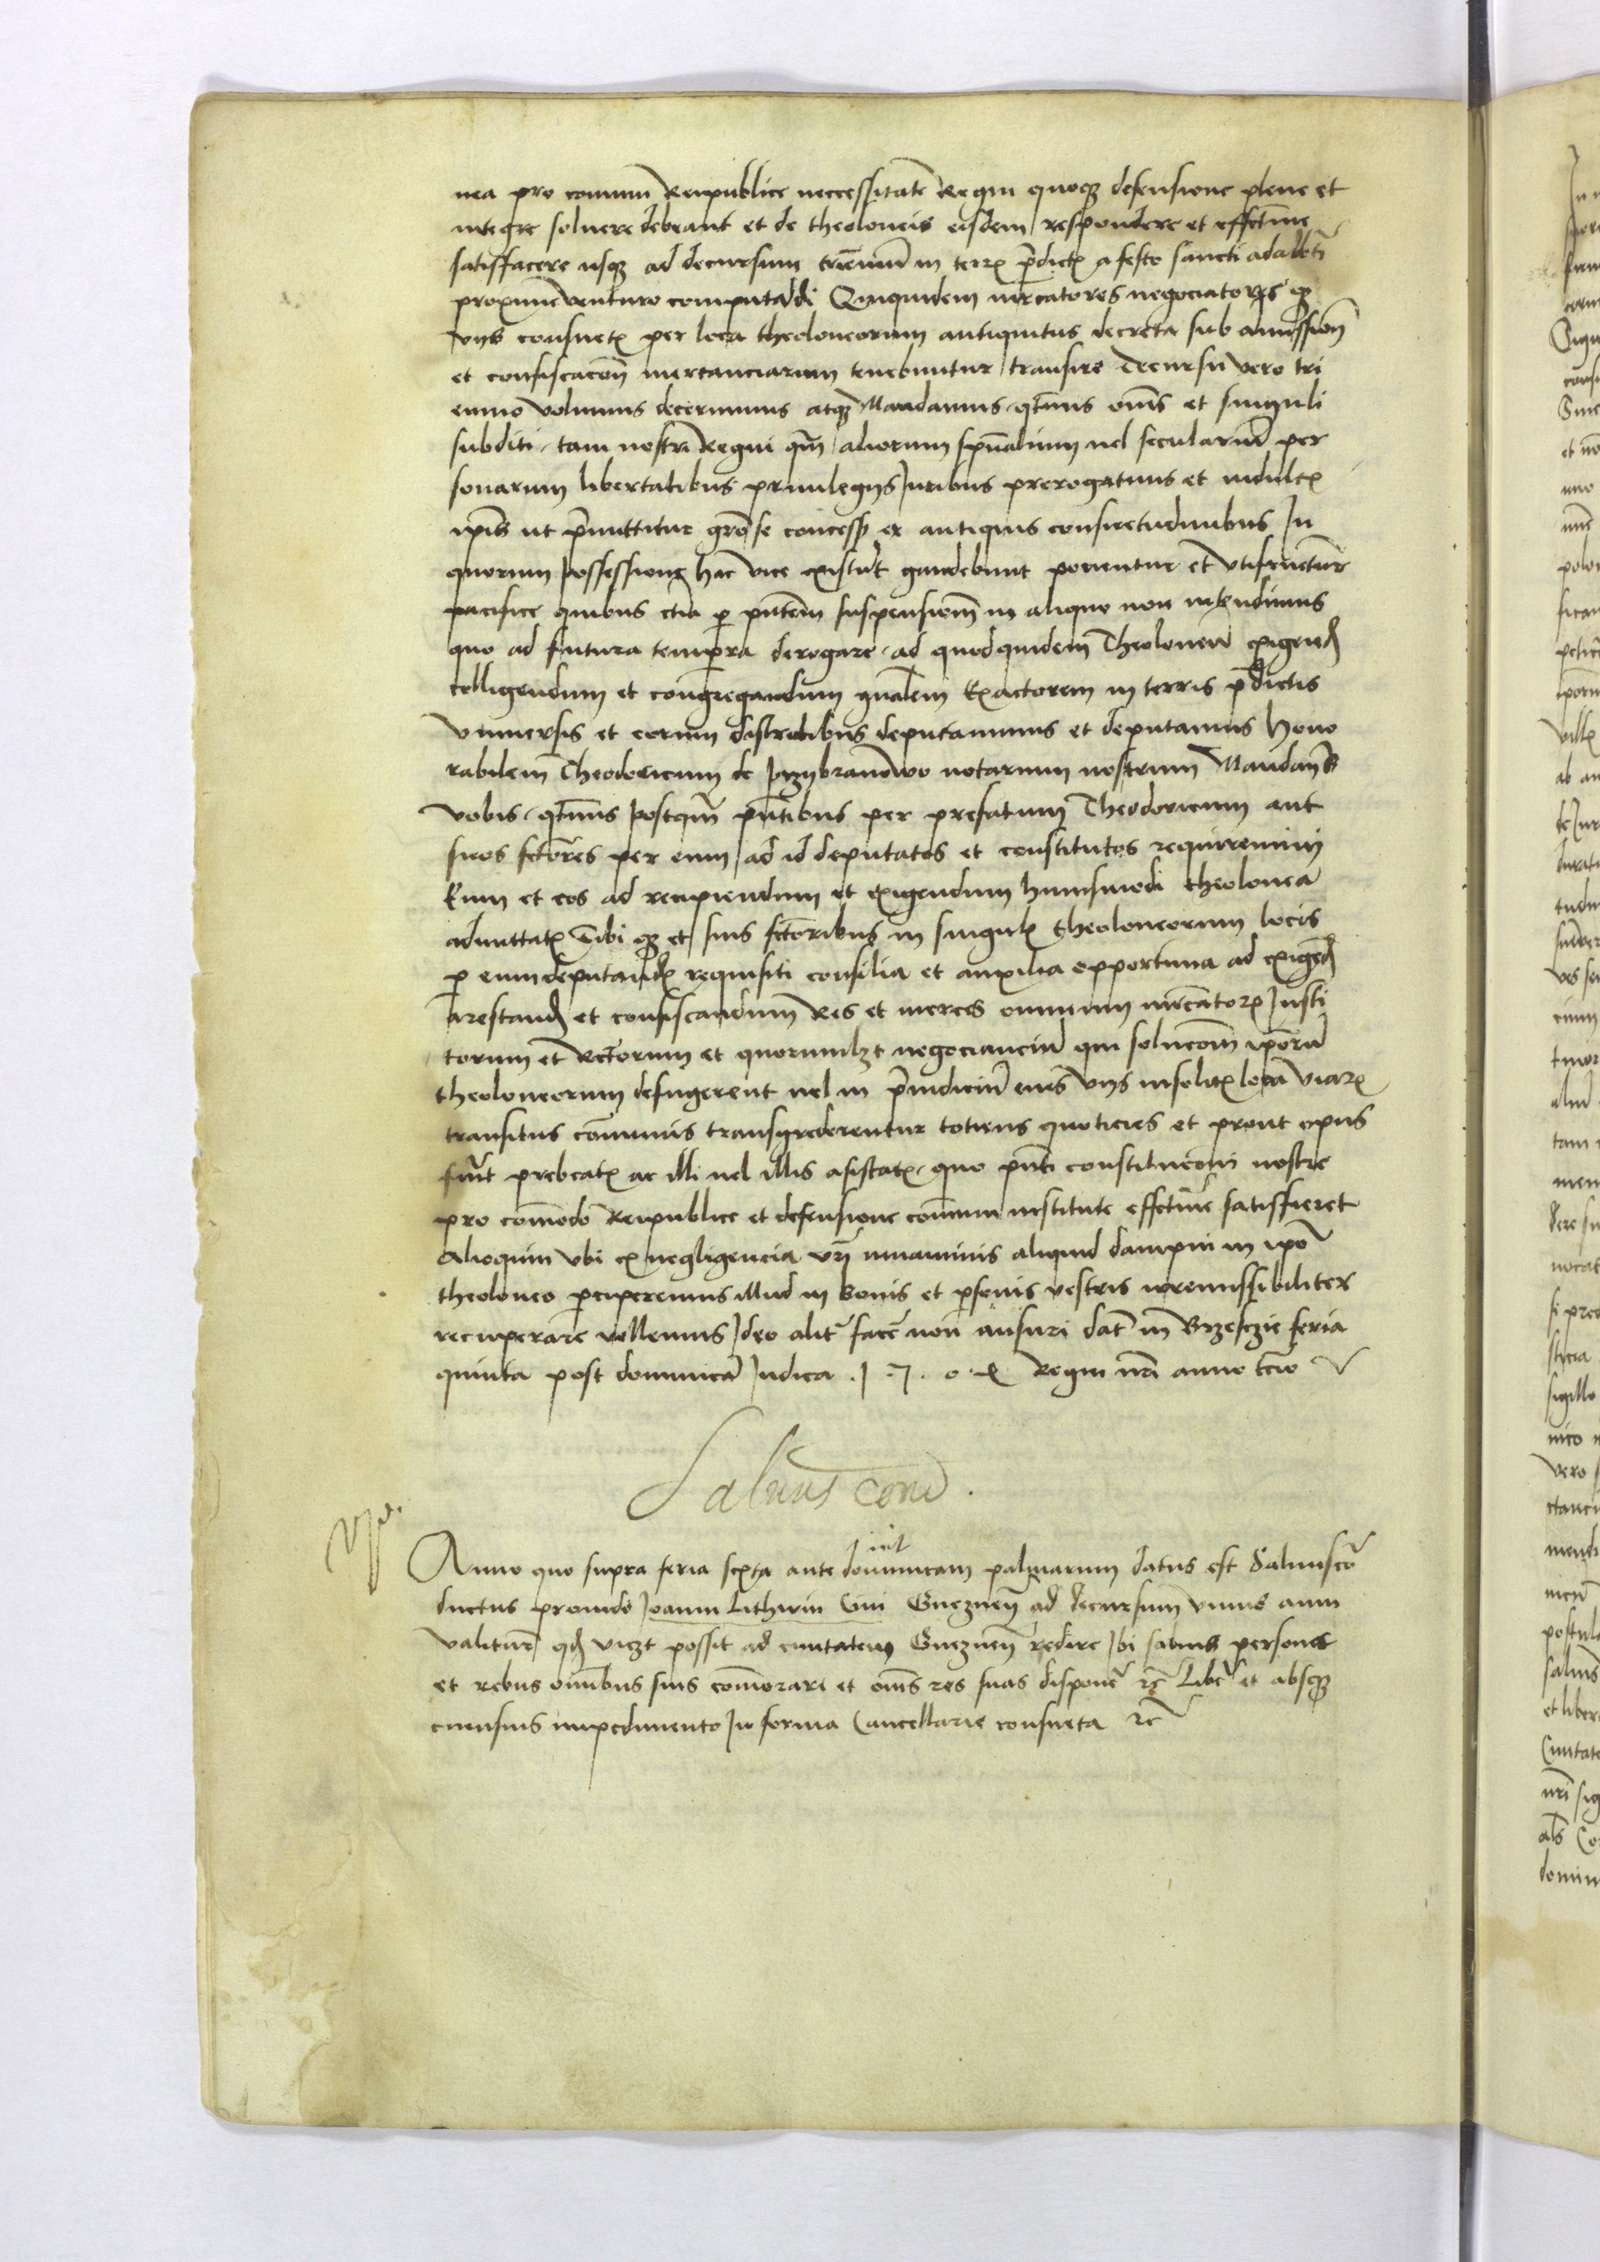 nea pro comuni Reipublice neccessitate Regni quoq defensione plene et
integre soluere debeant et de theoloneis eisdem respondere et effectiue
satisfacere usq ad decursum triennii in terris predictis a festo sancti adalberti
proxime venturo computandi Quiquidem mercatores negociatores q
viis consuetis per loca theoloneorum antiquitus decreta sub amissione
et confiscacione mercanciarum tenebuntur transire Decursu vero tri
ennio volumus decernimus atq Mandamus qtenus omnes et singuli
subditi tam nostri Regni qm aliorum spualium uel secularium per
sonarum libertatibus priuilegys Juribus prerogatiuis et indultis
ipsis ut premittitur grose concessis ex antiquis consuetudinibus In
quorum possessione hac vice existunt gaudebunt ponentur et utifruentur
pacifice quibus etia per pntem suspensionem in aliquo non intendimus
quo ad futura tempora derogare ad quodquidem Theoloneum exigend
colligendum et congregandum gnalem Exactorem in terris predictis
vniuersis et eorum districtibus deputauimus et deputamus Hono
rabilem Theodoricum de notarium nostrum Mandamus
vobis qtenus postqm pntibus per prefatum Theodoricum aut
suos fctores per eum ad id deputatos et constitutos requiremini
Eum et eos ad recipiendum et exigendum huiusmodi theolonea
admittatis Sibi q et suis fctoribus in singulis theoloneorum locis
p eum deputandis requisiti consilia et auxilia opportuna ad exigend
arestand et confiscandum Res et merces omnium mercatorum Insti
torum et vectorum et quorumlibet negociancium qui solucom ipsorum
theoloneorum defugerent uel in preiudicium eius viis insolitis loca viarum
transitus comunis transgrederentur totiens quoticies et prout opus
fuerit prebeatis ac illi uel illis asistatis quo pnti constitucoi nostre
pro comodo Reipublice et defensione comuni institute effctiue satisfieret
Alioquin vbi ex negligencia vri iuuaminis aliquid dampni in ipso
theoloneo perciperemus illud in bonis et personis vestris irremissibiliter
recuperare vellemus Ideo aliter facere non ausuri Dat in Brzesczie feria
quinta post dominica Judica . 1 . 5 . 0 . 4 Regni nri anno tcio
Saluus cond .
Anno quo supra feria sexta ante dominicam palmarum datus est Saluusco
ductus prouido Joanni Lithwin Ciui Gneznen ad decursum vnius anni
valitur qd viczt possit ad ciuitatem Gneznen redire Ibi saluus persona
et rebus omibus suis comorari et omes res suas disponere rc Libere et absq
cuiusuis impedimento In forma Cancellarie consueta rc